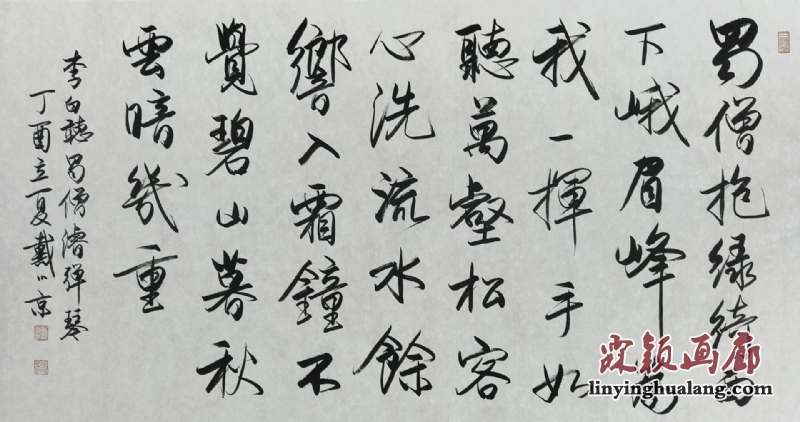 蜀僧抱綠綺西
下峨眉峰為
我一揮手如
聽萬壑松客
心洗流水餘
響入霜鐘不
覺碧山暮秋
雲暗幾重
李白聽蜀僧濬彈琴
丁酉立夏戴小京
霖颖画廊
linyinghualang.com